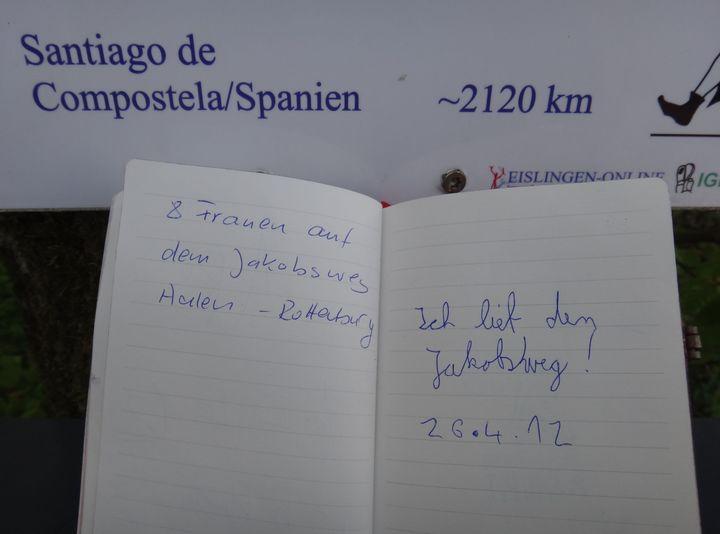 Santiago de
Compostela/Spanien ~2120 km
EISLINGEN-ONLINE
8 Frauen auf
dem Jakobsweg
- Rottenburg
Ich lief den
Jakobsweg!
26.4.12